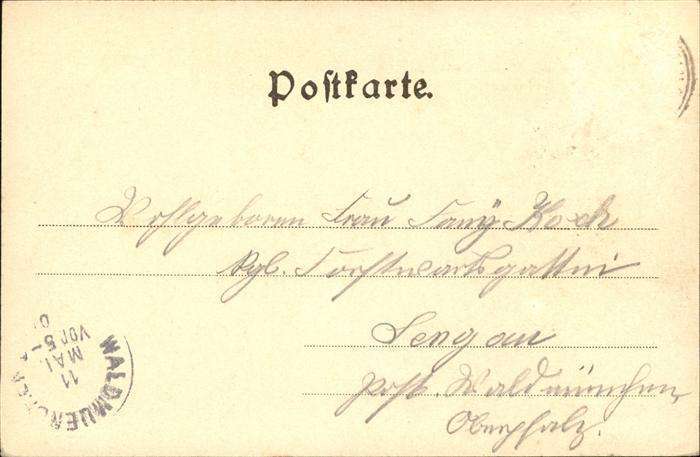 Postkarte.
Wohlgeboren Frau Fanÿ Koch
Kgl. Forstwartsgattin
Lengau
Post. Waldmünchen,
Oberpfalz.
WALDMUENCHEN
11
MAI
VOR 5-